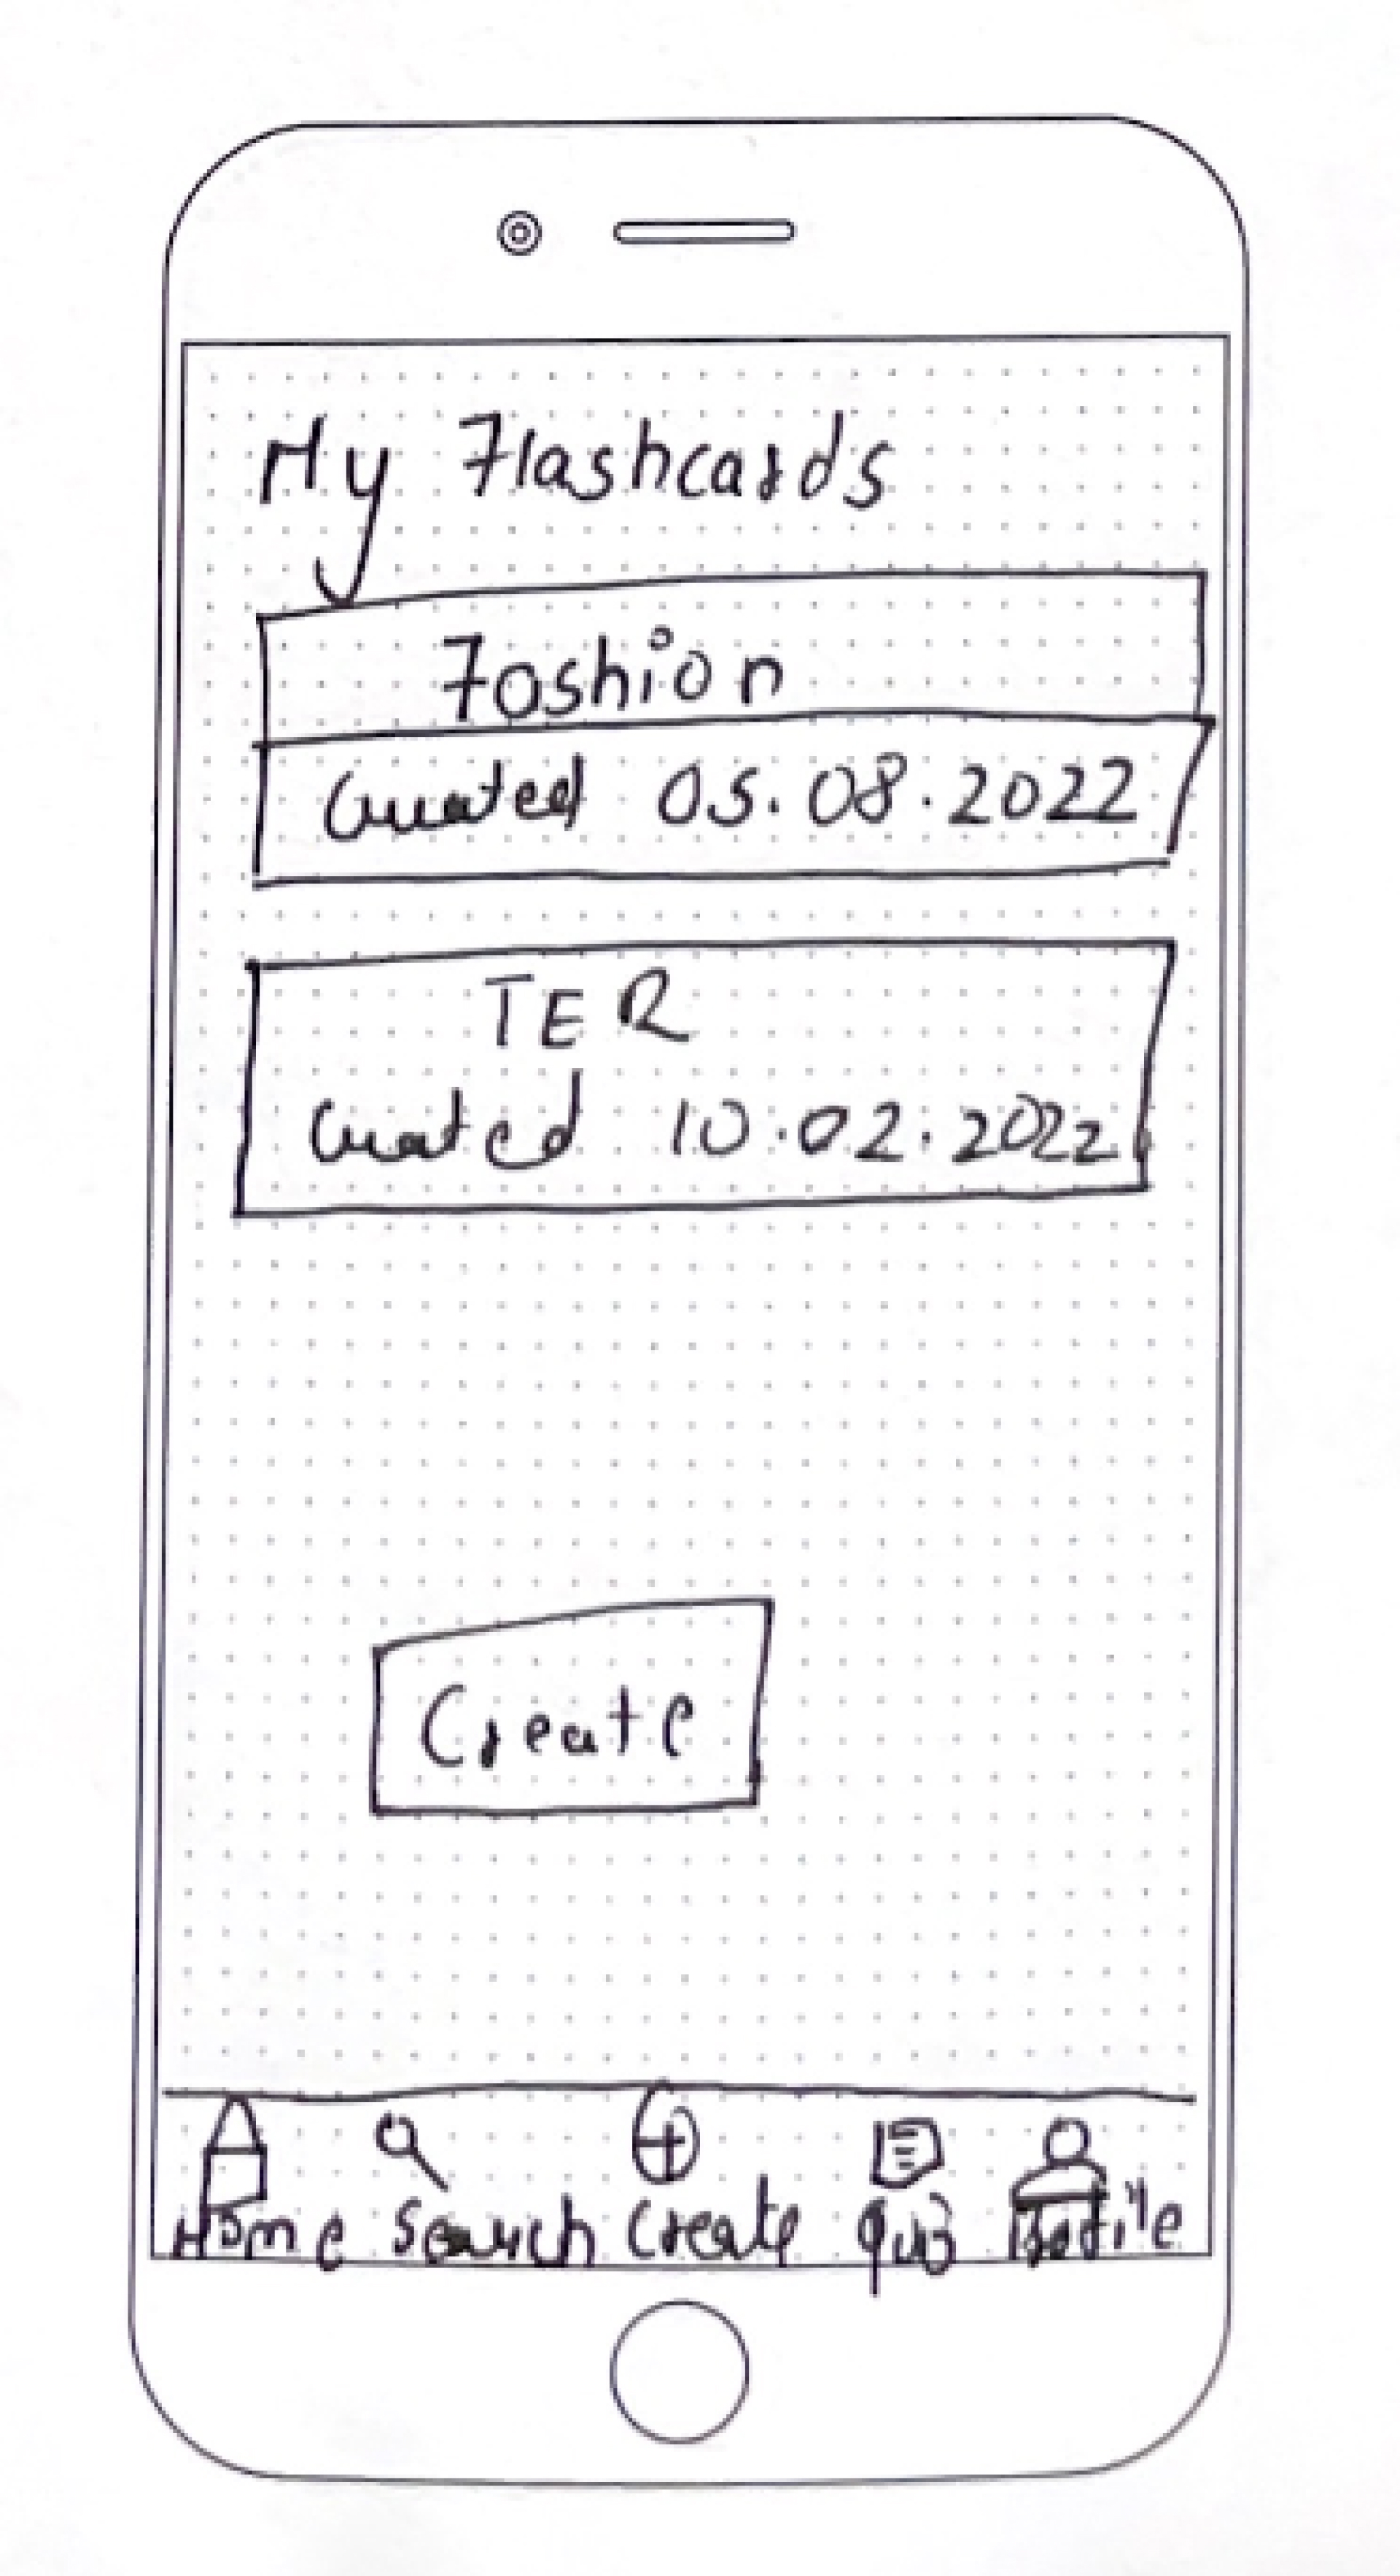 My Flashcards
Fashion
Created 05.08.2022
TER
Created 10.02.2022
Create
Home Search Create Quiz Profile